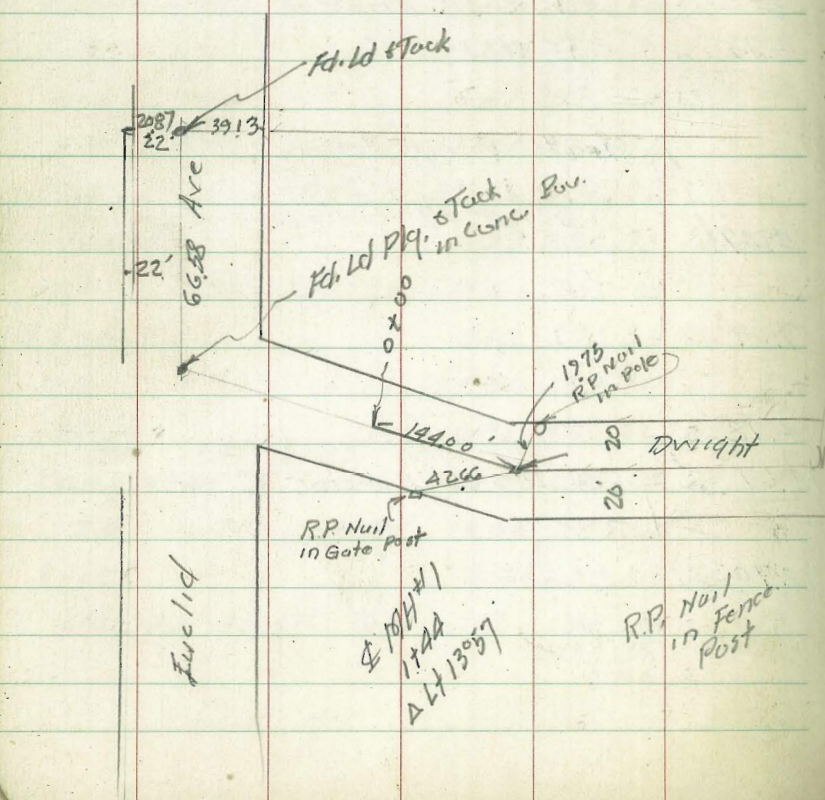 Fd. Ld & Tack
20.87
22'
39.13
66.58 Ave
22'
Fd. Ld Plg. & Tack
in Conc. Pav.
0 x 00
19.75
R.P. Nail
in Pole
144.00'
20'
Dwight
42.66
20'
R.P. Nail
in Gate Post
Euclid
₵ MH #1
1+44
Δ Lt 13°57'
R.P. Nail
in Fence
Post